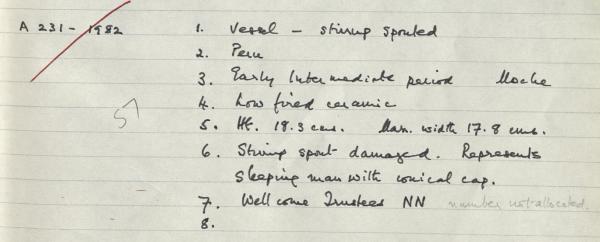 A 231 - 1982
1. Vessel - stirrup spouted
2. Peru
3. Early Intermediate period Moche
4. Low fired ceramic
57
5. Ht. 18.3 cms. Max. width 17.8 cms.
6. Stirrup spout damaged. Represents
sleeping man with conical cap.
7. Wellcome Trustees NN number not allocated.
8.